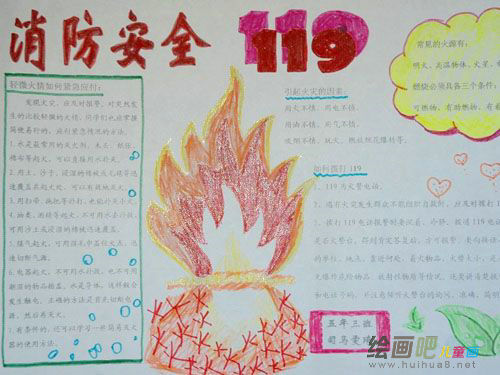 消防安全
119
轻微火情如何紧急应付:
发现火灾,应及时报警,对突然发
生的比较轻微的火情,同学们也应掌握
简便易行的,应付紧急情况的方法。
1.水是最常用的灭火剂,木头,纸张,
棉布等起火,可以直接用水扑灭。
2.用土、沙子、浸湿的棉被或毛毯等迅
速覆盖在起火处,可以有效地灭火。
3.用扫帚、拖把等扑打,也能扑灭小火。
4.油类、酒精等起火,不可用水去扑救,
可用沙土或浸湿的棉被迅速覆盖。
5.煤气起火,可用湿毛巾盖住火点,迅
速切断气源。
6.电器起火,不可用水扑救,也不可用
潮湿的物品捂盖。水是导体,这样做会
发生触电。正确的方法是首先切断电
源,然后再灭火。
7.有条件的,还可以学习一些简易灭火
器的使用方法。
引起火灾的因素:
用火不慎、用电不慎、
用油不慎、用气不慎、
吸烟不慎、玩火、燃放烟花爆竹等。
如何拨打 119
1、119为火警电话。
2、遇有火灾发生得不能组织自救时,应及时拨打
3、拨打119电话报警时要沉着、冷静,拨通119电话
是否火警台,得到肯定答复后,方可报警。
的单位,地点,靠近何处,着火物品,火势大小,是
无爆炸危险物品、放射性物质等情况,还要讲清楚
和电话号码,
常见的火源有:
明火、高温物体、火星、
燃烧必须具备三个条件:
可燃物、有助燃物、有
五年三班
绘画吧
儿童画
www.huihua8.net